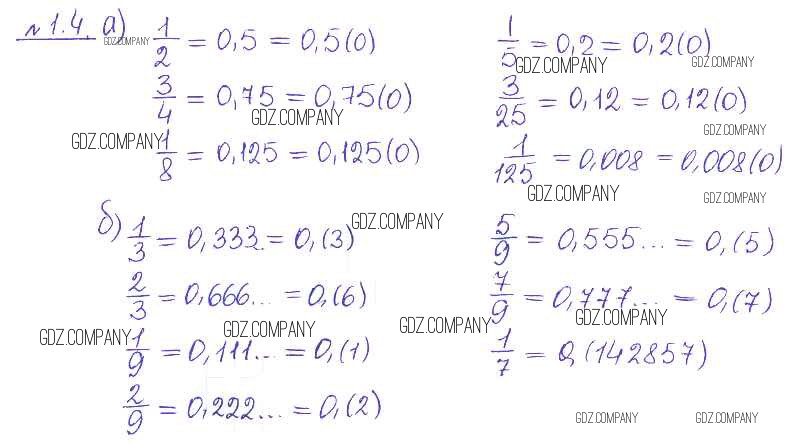 № 1.4. а) 1/2 = 0,5 = 0,5(0)
GDZ.COMPANY
3/4 = 0,75 = 0,75(0)
GDZ.COMPANY
GDZ.COMPANY
1/8 = 0,125 = 0,125(0)
1/5 = 0,2 = 0,2(0)
GDZ.COMPANY
GDZ.COMPANY
3/25 = 0,12 = 0,12(0)
GDZ.COMPANY
1/125 = 0,008 = 0,008(0)
GDZ.COMPANY
GDZ.COMPANY
б) 1/3 = 0,333... = 0,(3)
GDZ.COMPANY
2/3 = 0,666... = 0,(6)
GDZ.COMPANY
GDZ.COMPANY
GDZ.COMPANY
1/9 = 0,111... = 0,(1)
2/9 = 0,222... = 0,(2)
5/9 = 0,555... = 0,(5)
7/9 = 0,777... = 0,(7)
GDZ.COMPANY
1/7 = 0,(142857)
GDZ.COMPANY
GDZ.COMPANY